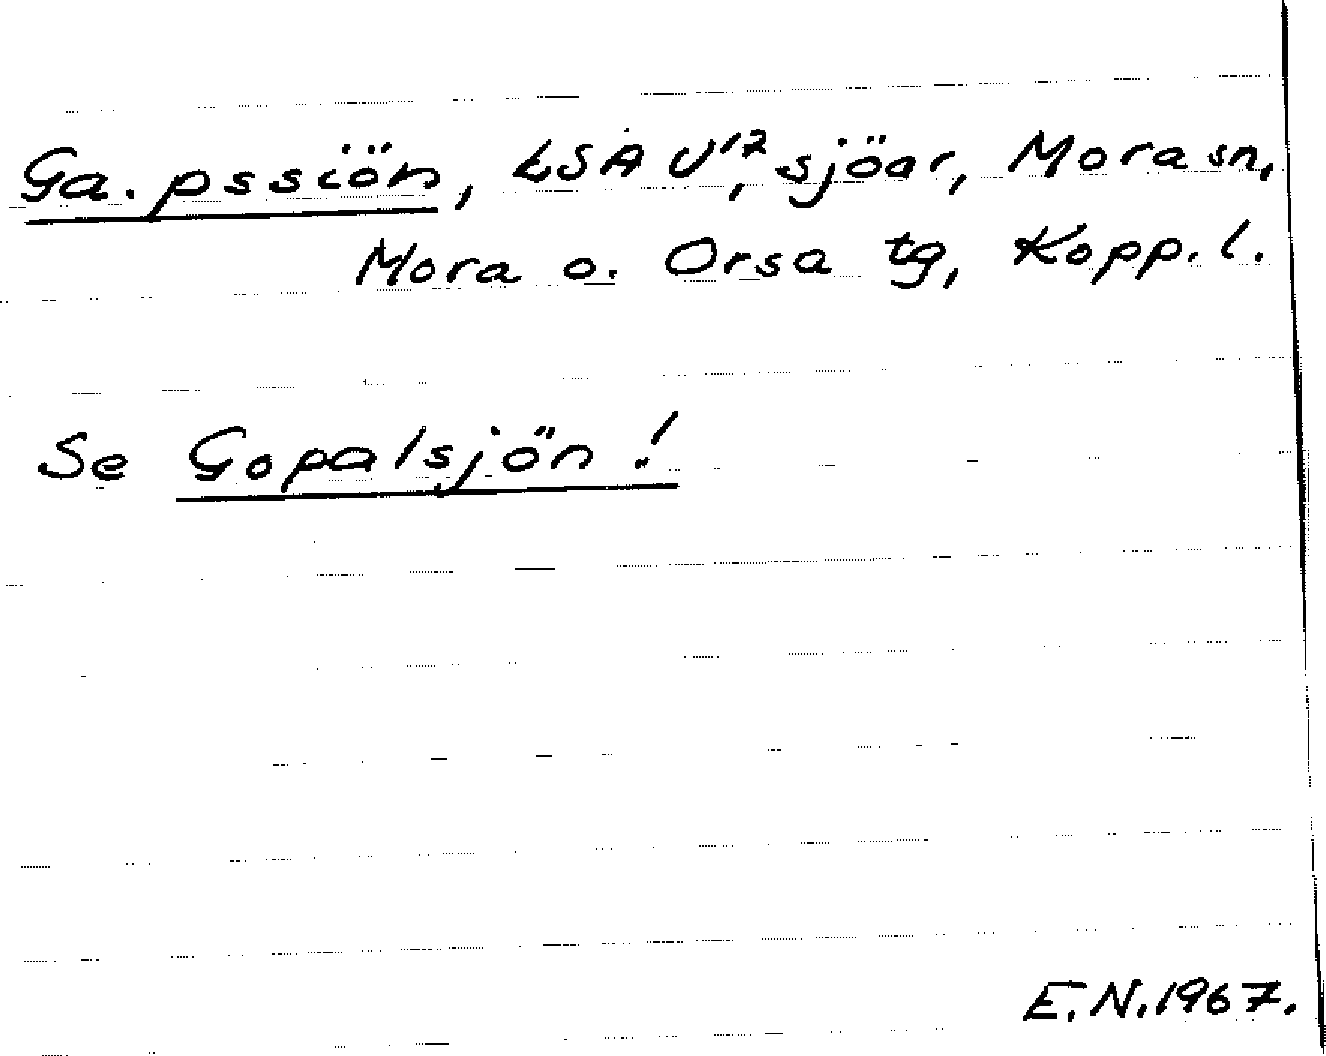 Ga.pssiön, LSA U¹², sjöar, Mora sn,
Mora o. Orsa tg, Kopp. l.
Se Gopalsjön!
E.N. 1967.